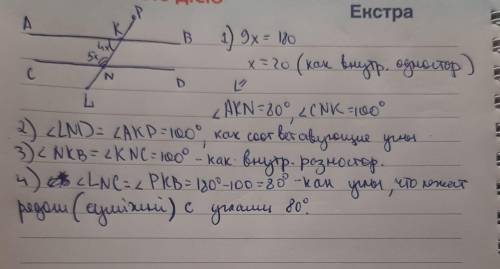 Екстра
A
P
K
4x
B
5x
C
N
D
L
1) 9x = 180
x = 20 (как внутр. одностор)
∠AKN = 80°, ∠CNK = 100°
2) ∠LND = ∠AKP = 100°, как соответствующие углы
3) ∠NKB = ∠KNC = 100° - как внутр. разностор.
4) ∠LNC = ∠PKB = 180° - 100 = 80° - как углы, что лежат
рядом (суміжні) с углами 80°.